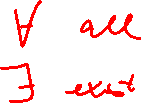 ∀ all
∃ exist